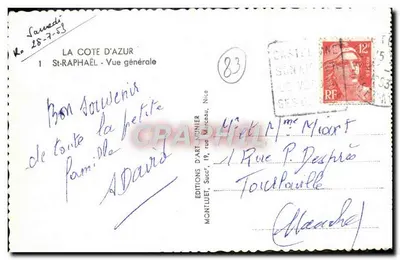 Samedi
le 25-7-53
LA COTE D'AZUR
1 St-RAPHAËL - Vue générale
83
12F
RF
Bon Souvenir
de toute la petite
famille
A David
EDITIONS D'ART MUNIER
MONTLUET, Succr, 19, rue Marceau, Nice
Mr et Mme Miort
1 Rue P. Després
Tourlaville
Manche
Cartorum